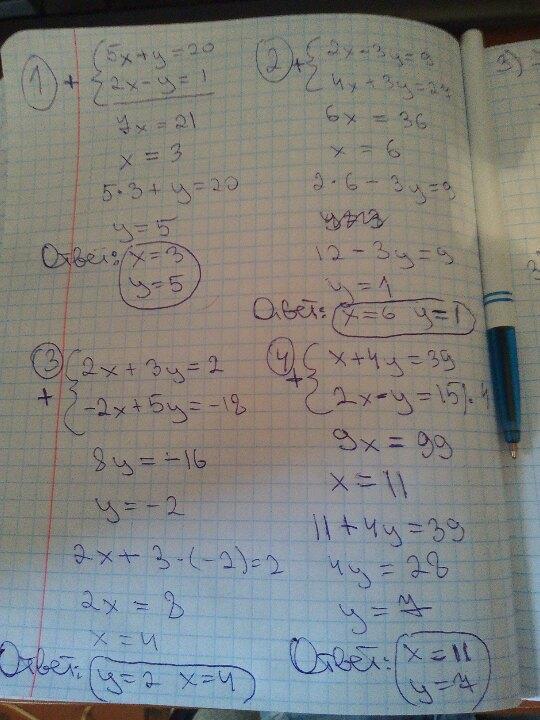 1
+ { 5x+y=20
2x-y=1
7x=21
x=3
5·3+y=20
y=5
Ответ: x=3
y=5
2
+ { 2x-3y=9
4x+3y=27
6x=36
x=6
2·6-3y=9
12-3y=9
y=1
Ответ: x=6 y=1
3
+ { 2x+3y=2
-2x+5y=-18
8y=-16
y=-2
2x+3·(-2)=2
2x=8
x=4
Ответ: y=2 x=4
4
+ { x+4y=39
2x-y=15|·4
9x=99
x=11
11+4y=39
4y=28
y=7
Ответ: x=11
y=7
3)